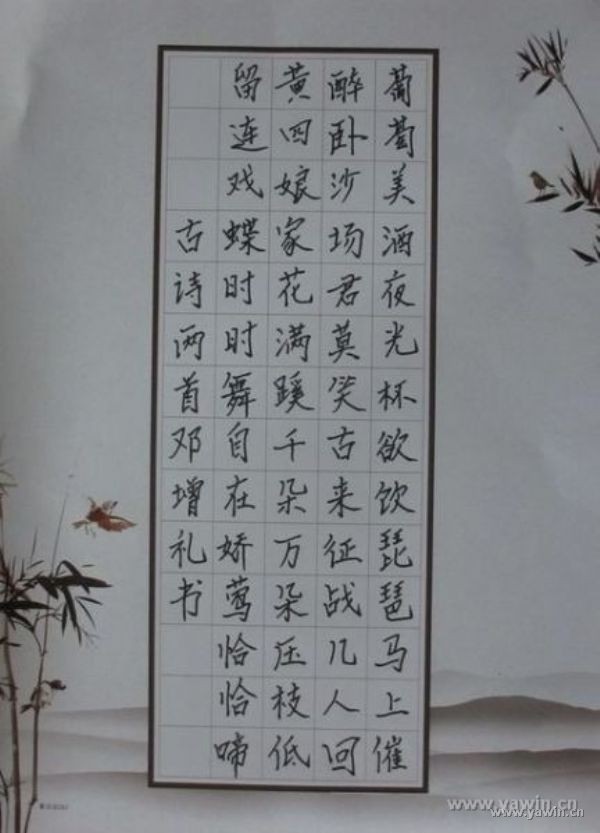 葡萄美酒夜光杯欲饮琵琶马上催
醉卧沙场君莫笑古来征战几人回
黄四娘家花满蹊千朵万朵压枝低
留连戏蝶时时舞自在娇莺恰恰啼
古诗两首邓增礼书
www.yawin.cn
www.yawin.cn